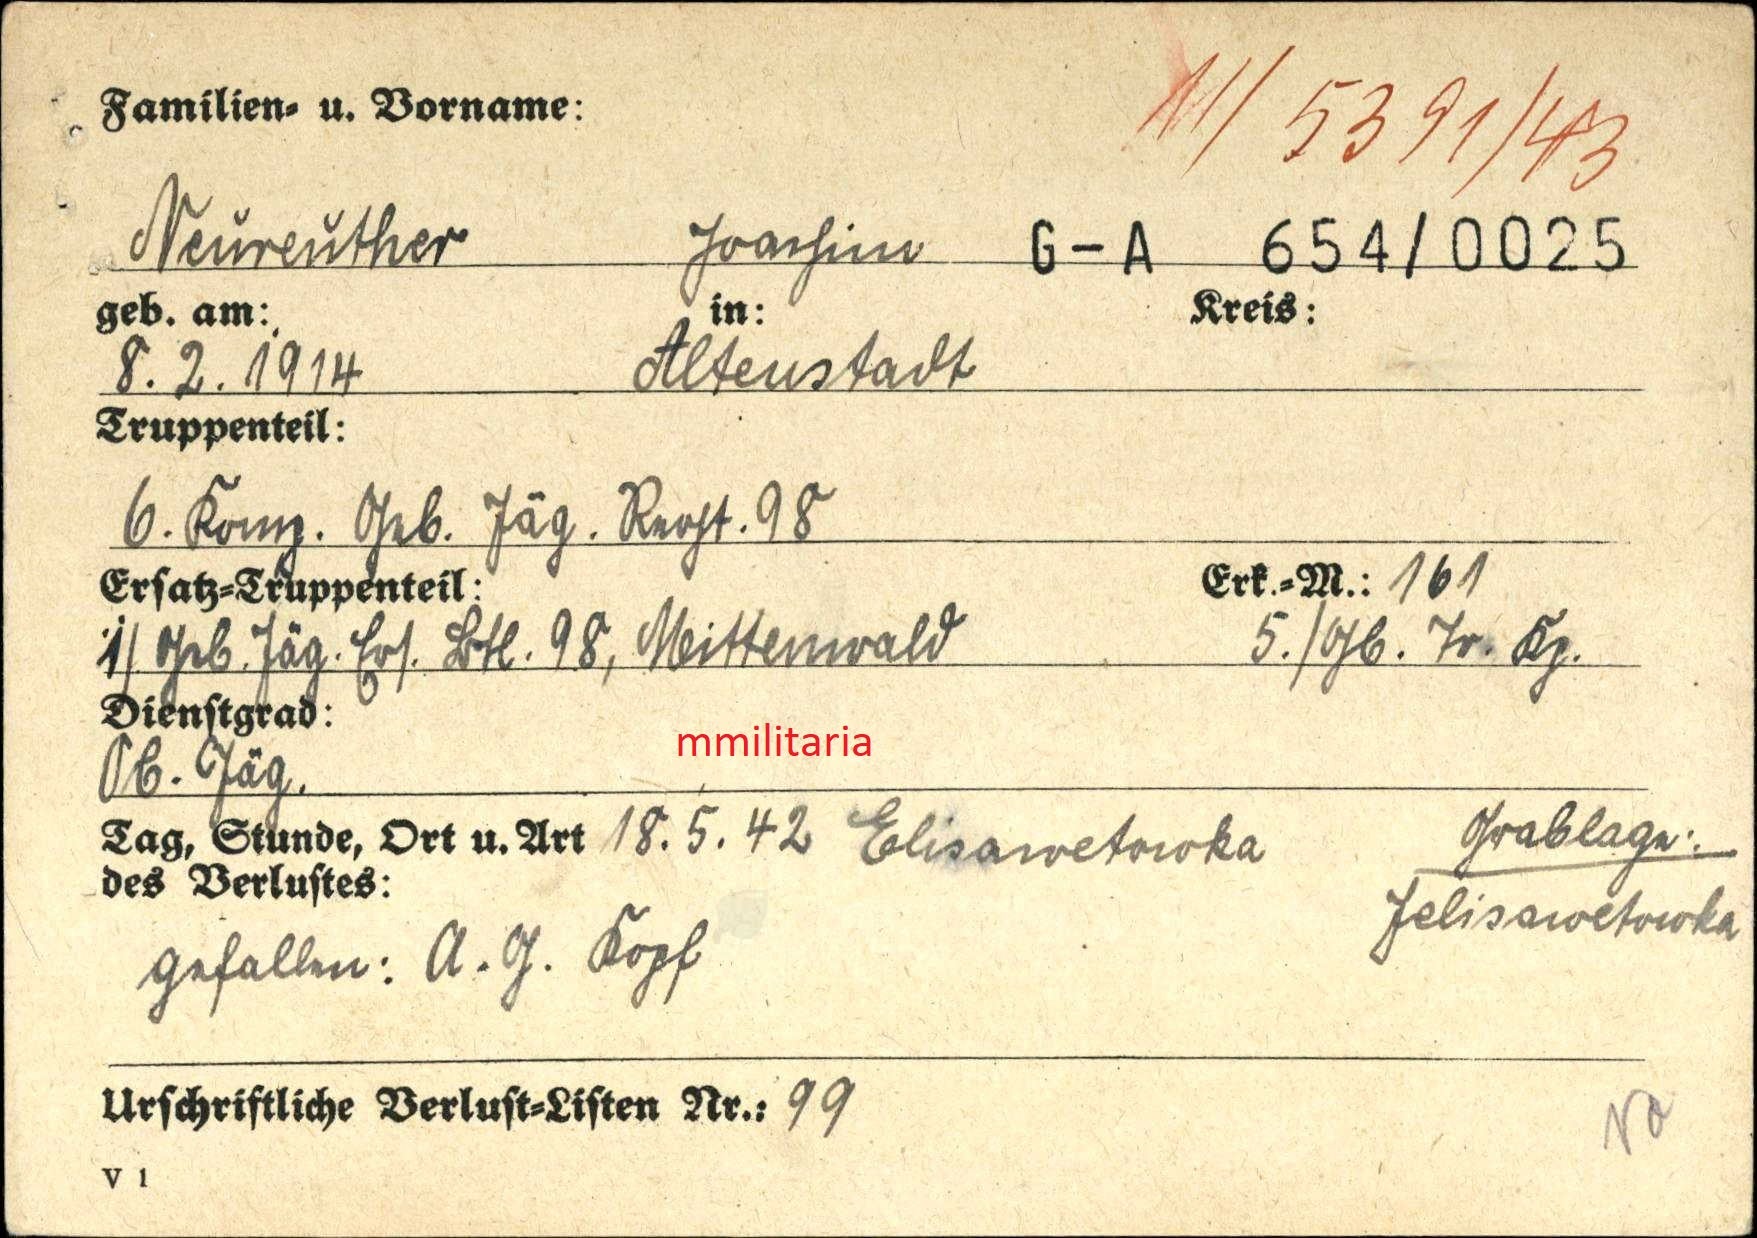 Familien- u. Vorname:
11/ 5391/43
Neureuther Joachim G-A 654/0025
geb. am: in: Kreis:
8.2.1914 Altenstadt
Truppenteil:
6. Komp. Geb. Jäg. Regt. 98
Ersatz-Truppenteil: Erk.-M.: 161
1/ Geb. Jäg. Ers. Btl. 98, Mittenwald 5./Gb. Tr. Kp.
Dienstgrad:
Ob. Jäg.
mmilitaria
Tag, Stunde, Ort u. Art 18.5.42 Elisawetowka Grablage:
des Verlustes: Jelisawetowka
gefallen: A. G. Kopf
Urschriftliche Verlust-Listen Nr.: 99
V 1